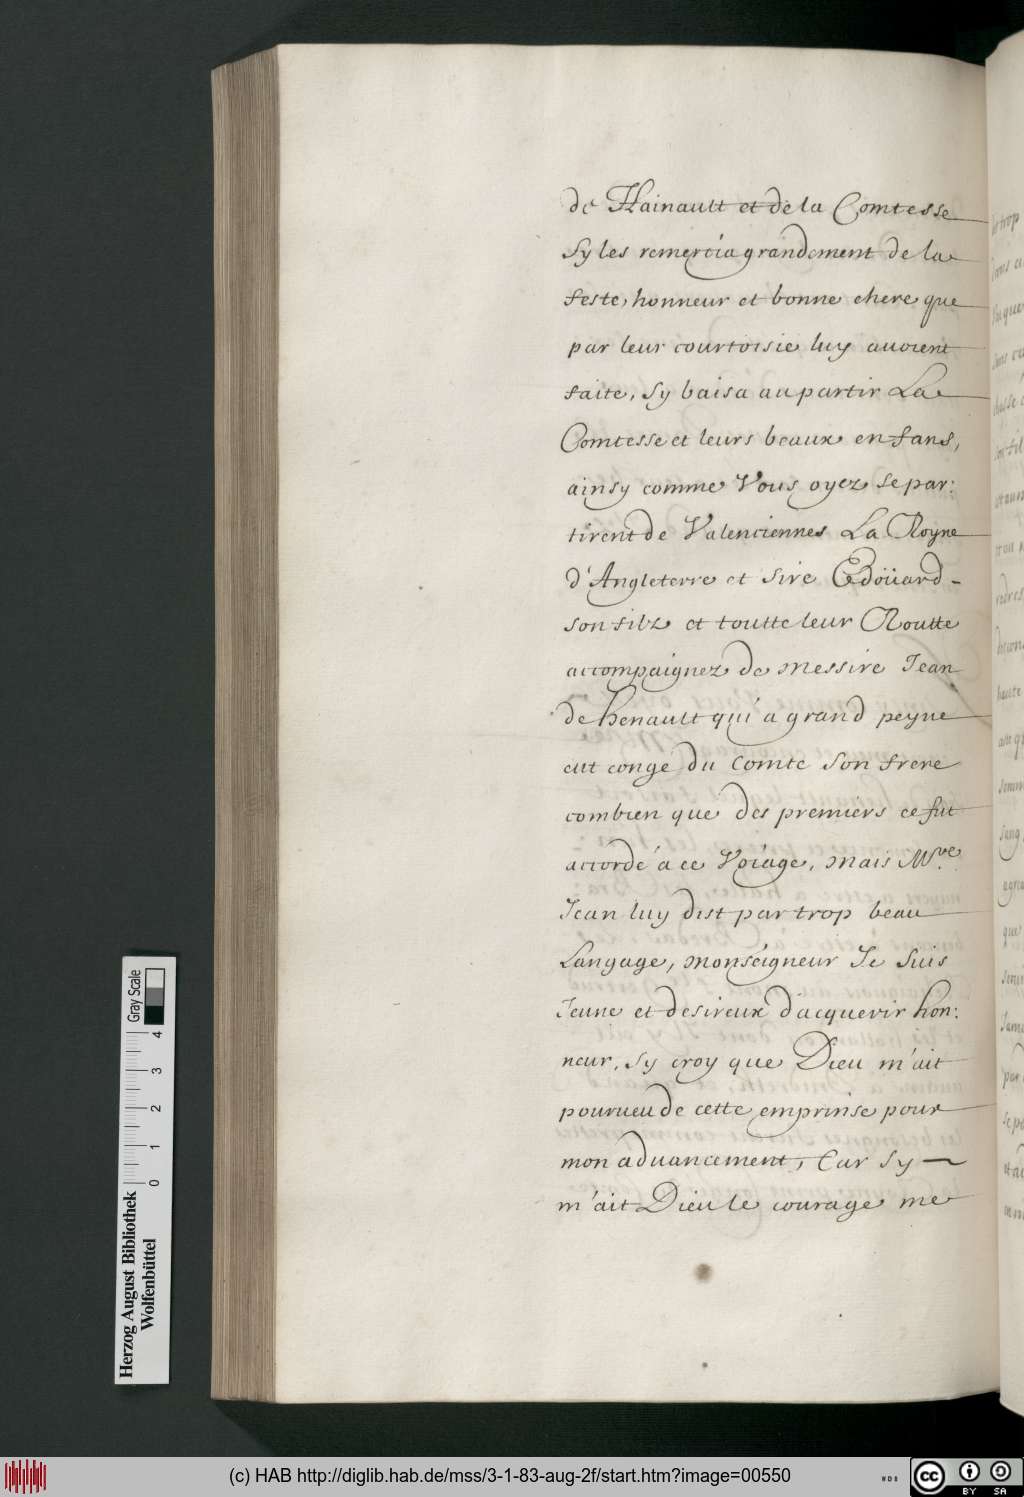 de Hainault et de la Comtesse
Sy les remercia grandement de la
feste, honneur et bonne chere que
par leur courtoisie luy avoient
faite, Sy baisa au partir La
Comtesse et leurs beaux enfans,
ainsy comme Vous oyez se par:
tirent de Valenciennes La Royne
d'Angleterre et Sire Edoüard-
son filz et toutte leur Routte
accompaignez de Messire Jean
de henault qui a grand peyne
eut congé du Comte Son frere
combien que des premiers ce fut
accordé à ce Voiage, Mais Mre
Jean luy dist par trop beau
Langage, Monseigneur Je Suis
Jeune et desireux d'acquerir hon:
neur, Sy croy que Dieu m'ait
pourueu de cette emprinse pour
mon aduancement, Car Sy —
m'ait Dieu le courage me
Herzog August Bibliothek
Wolfenbüttel
Gray Scale
0 1 2 3 4
(c) HAB http://diglib.hab.de/mss/3-1-83-aug-2f/start.htm?image=00550
WDB
cc BY SA